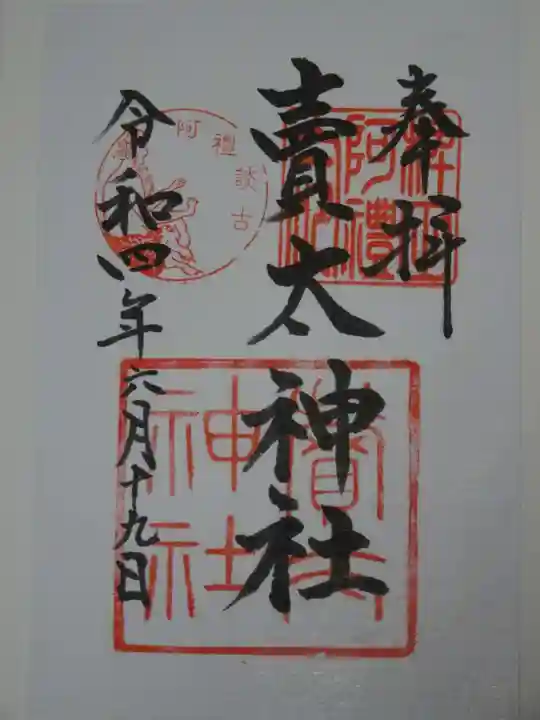 奉拝
賣太神社
令和四年六月十九日
阿禮
神社
阿禮談古